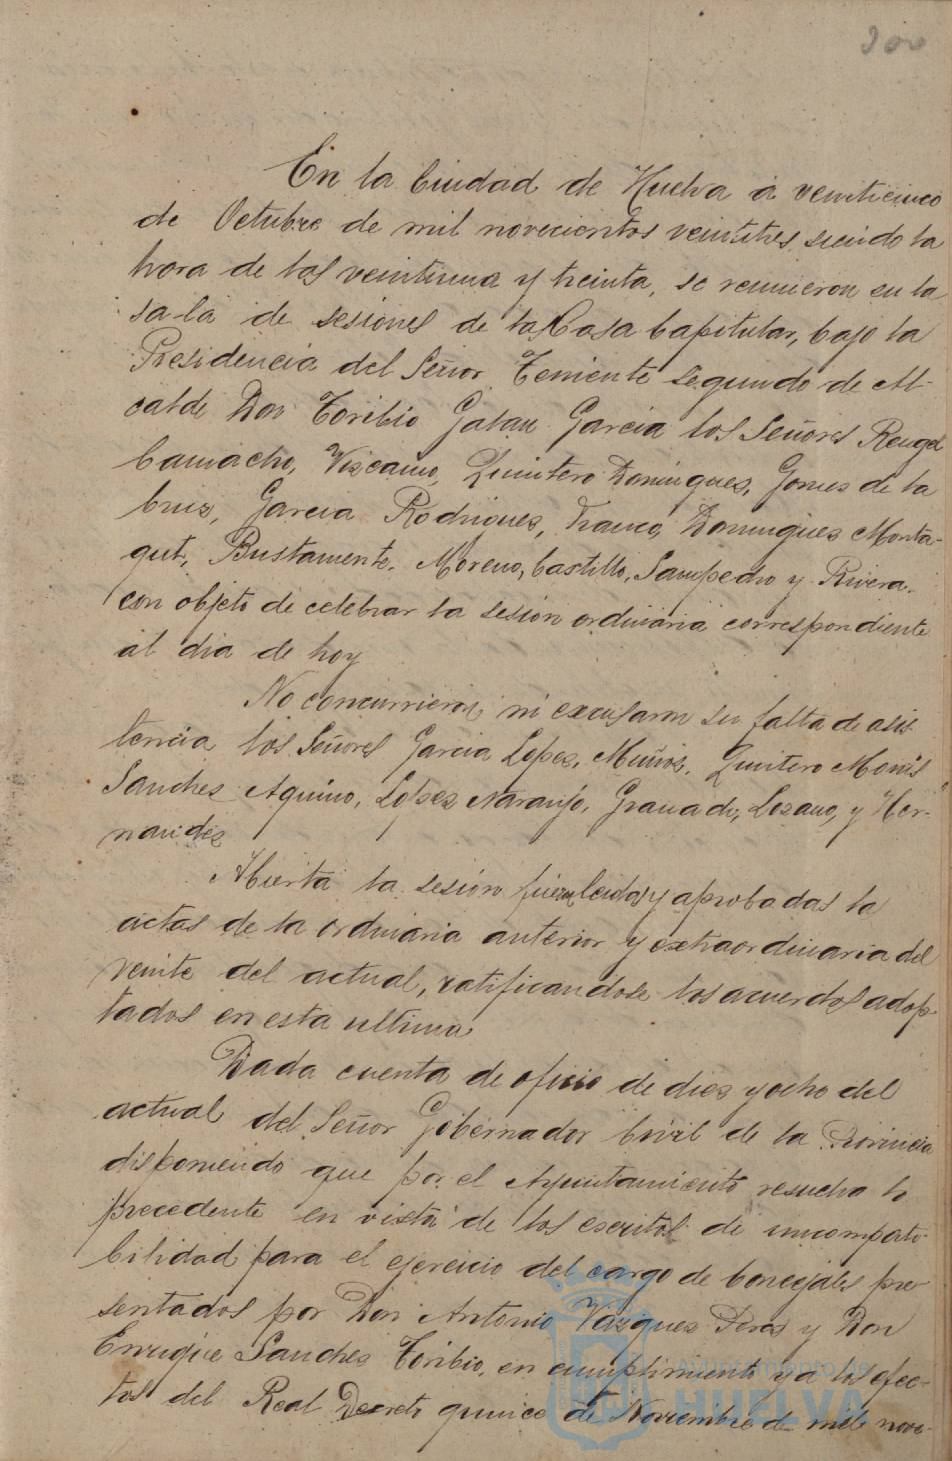 300
En la Ciudad de Huelva á veinticinco
de Octubre de mil novecientos veintitres, siendo la
hora de las veintiuna y treinta, se reunieron en la
sala de sesiones de la Casa Capitular, bajo la
Presidencia del Señor Teniente segundo de Al-
calde Don Toribio Galan Garcia los Señores Rengel
Camacho, Viscaino, Quintero Domingues, Gomes de la
Cruis, Garcia Rodrigues, Franco, Domingues Monta-
gut, Bustamente, Moreno, Castillo, Sampedro y Rivera,
con objeto de celebrar la sesion ordinaria correspondiente
al dia de hoy
No concurrieron, ni excusaron su falta de asis-
tencia los Señores Garcia Lopes, Muños, Quintero Monis
Sanches Aquino, Lopes Naranjo, Granado, Lozano, y Her-
nandes
Abierta la sesion fueron leidas y aprobadas la
actas de la ordinaria anterior y extraordinaria del
veinte del actual, ratificandose los acuerdos adop-
tados en esta ultima
Dada cuenta de oficio de dies y ocho del
actual del Señor Gobernador Civil de la Provincia
disponiendo que por el Ayuntamiento resuelva lo
precedente en vista de los escritos de incompati-
bilidad para el ejercicio del cargo de Concejales pre-
sentados por Don Antonio Vazques Peres y Don
Enrique Sanches Toribio, en cumplimiento y a los efec-
tos del Real Decreto quince de Noviembre de mil nove-
AYUNTAMIENTO DE
HUELVA